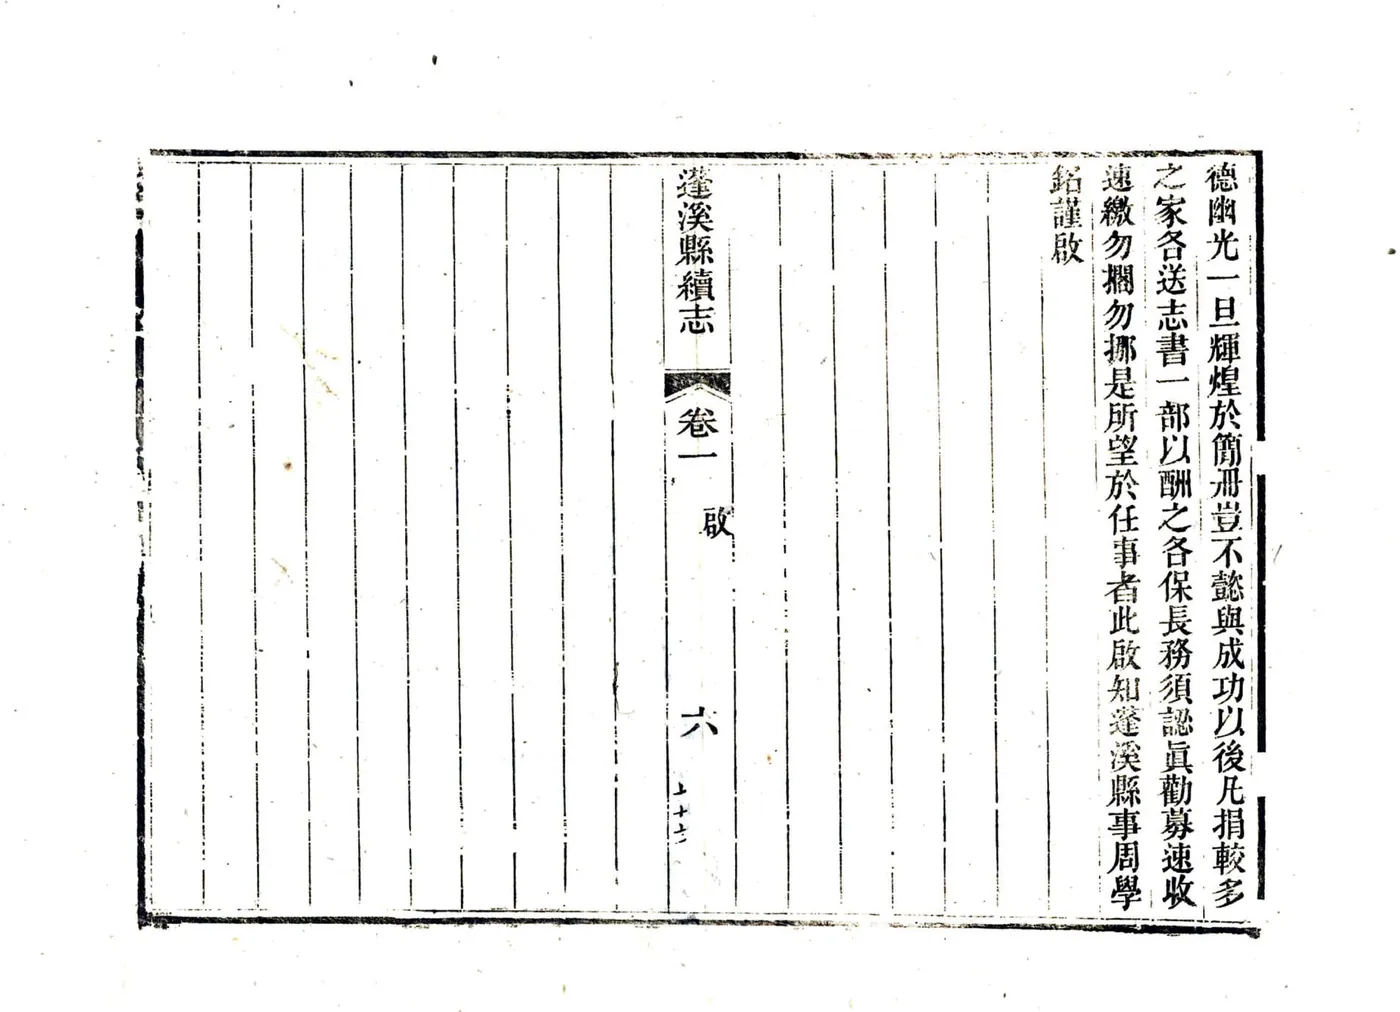 德幽光一旦輝煌於簡冊豈不懿與成功以後凡捐較多
之家各送志書一部以酬之各保長務須認眞勸募速收
速繳勿擱勿挪是所望於任事者此啟知蓬溪縣事周學
銘謹啟
蓬溪縣續志
卷一
啟
六